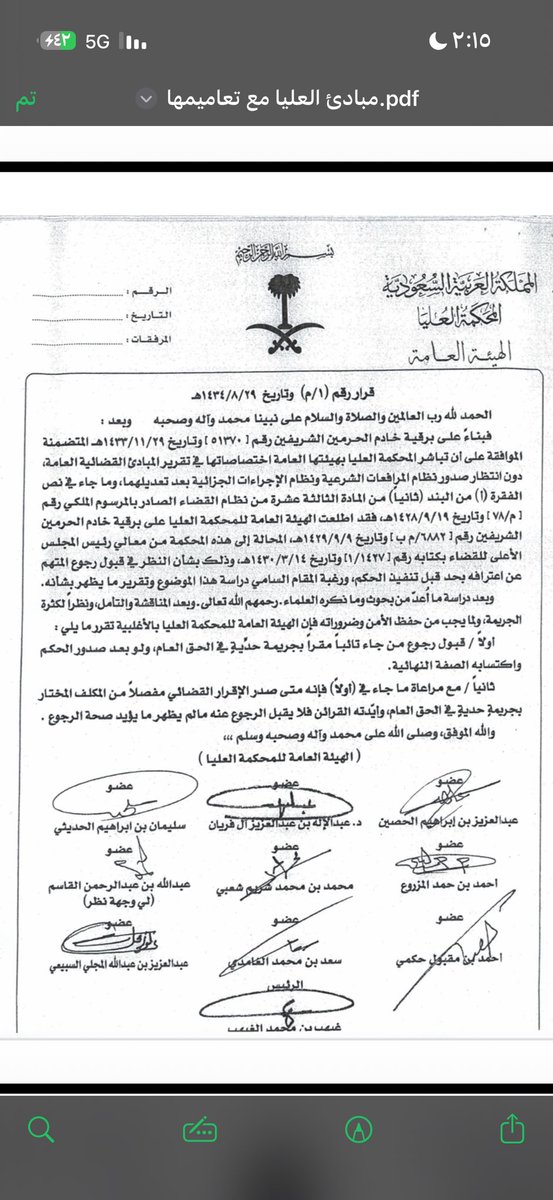 ٢:١٥
5G
٤٢
مبادئ العليا مع تعاميمها.pdf
تم
بسم الله الرحمن الرحيم
المملكة العربية السعودية
المحكمة العليا
الهيئة العامة
الرقم :
التاريخ :
المرفقات :
قرار رقم (١/م) وتاريخ ١٤٣٤/٨/٢٩هـ
الحمد لله رب العالمين والصلاة والسلام على نبينا محمد وآله وصحبه وبعد :
فبناءً على برقية خادم الحرمين الشريفين رقم [ ٥١٣٧٠ ] وتاريخ ١٤٣٣/١١/٢٩هـ المتضمنة
الموافقة على أن تباشر المحكمة العليا بهيئتها العامة اختصاصاتها في تقرير المبادئ القضائية العامة،
دون انتظار صدور نظام المرافعات الشرعية ونظام الإجراءات الجزائية بعد تعديلهما، وما جاء في نص
الفقرة (١) من البند (ثانياً) من المادة الثالثة عشرة من نظام القضاء الصادر بالمرسوم الملكي رقم
[ م/٧٨ ] وتاريخ ١٤٢٨/٩/١٩هـ، فقد اطلعت الهيئة العامة للمحكمة العليا على برقية خادم الحرمين
الشريفين رقم [ ٦٨٨٢/م ب ] وتاريخ ١٤٢٩/٩/٩هـ، المحالة إلى هذه المحكمة من معالي رئيس المجلس
الأعلى للقضاء بكتابه رقم [ ١/١٤٢٧ ] وتاريخ ١٤٣٠/٣/١٤هـ، وذلك بشأن النظر في قبول رجوع المتهم
عن اعترافه بحد قبل تنفيذ الحكم، ورغبة المقام السامي دراسة هذا الموضوع وتقرير ما يظهر بشأنه.
وبعد دراسة ما أُعدّ من بحوث وما ذكره العلماء. رحمهم الله تعالى. وبعد المناقشة والتأمل، ونظراً لكثرة
الجريمة، ولما يجب من حفظ الأمن وضروراته فإن الهيئة العامة للمحكمة العليا بالأغلبية تقرر ما يلي :
أولاً / قبول رجوع من جاء تائباً مقراً بجريمة حدّيةٍ في الحق العام، ولو بعد صدور الحكم
واكتسابه الصفة النهائية.
ثانياً / مع مراعاة ما جاء في (أولاً) فإنه متى صدر الإقرار القضائي مفصلاً من المكلف المختار
بجريمةٍ حديةٍ في الحق العام، وأيّدته القرائن فلا يقبل الرجوع عنه مالم يظهر ما يؤيد صحة الرجوع .
والله الموفق، وصلى الله على محمد وآله وصحبه وسلم ،،،
( الهيئة العامة للمحكمة العليا )
عضو
عبدالعزيز بن إبراهيم الحصين
عضو
د. عبدالإله بن عبدالعزيز آل فريان
عضو
سليمان بن ابراهيم الحديثي
عضو
احمد بن حمد المزروع
عضو
محمد بن محمد شريم شعبي
عضو
عبدالله بن عبدالرحمن القاسم
(لي وجهة نظر)
عضو
احمد بن مقبول حكمي
عضو
سعد بن محمد الغامدي
عضو
عبدالعزيز بن عبدالله المجلي السبيعي
الرئيس
غيهب بن محمد الغيهب